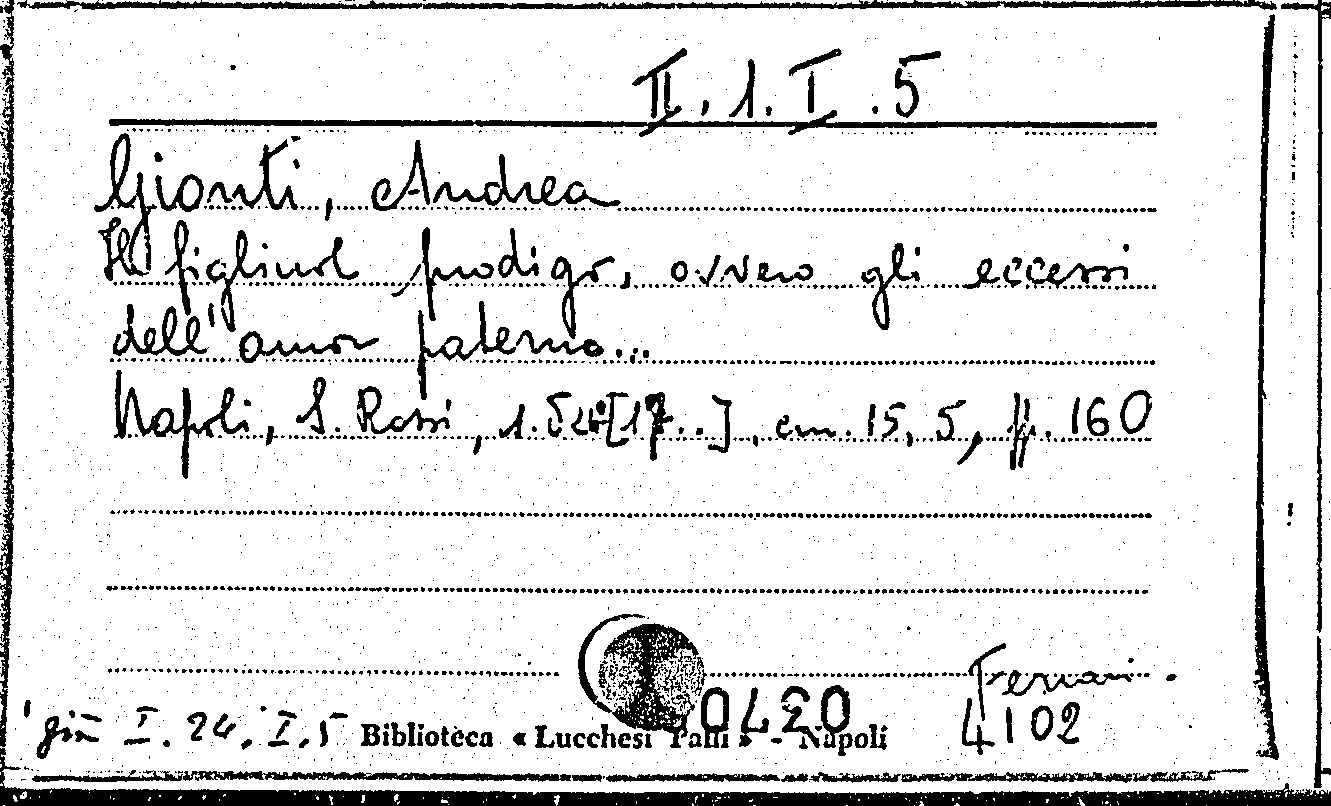 II.1.I.5
Gionti, Andrea
Il figliuol prodigo, ovvero gli eccessi
dell'amor paterno...
Napoli, S. Rossi, [17..], cm. 15,5, pp. 160
Ferrari.
già I. 24. I.5 Biblioteca « Lucchesi Palli » - Napoli 4102